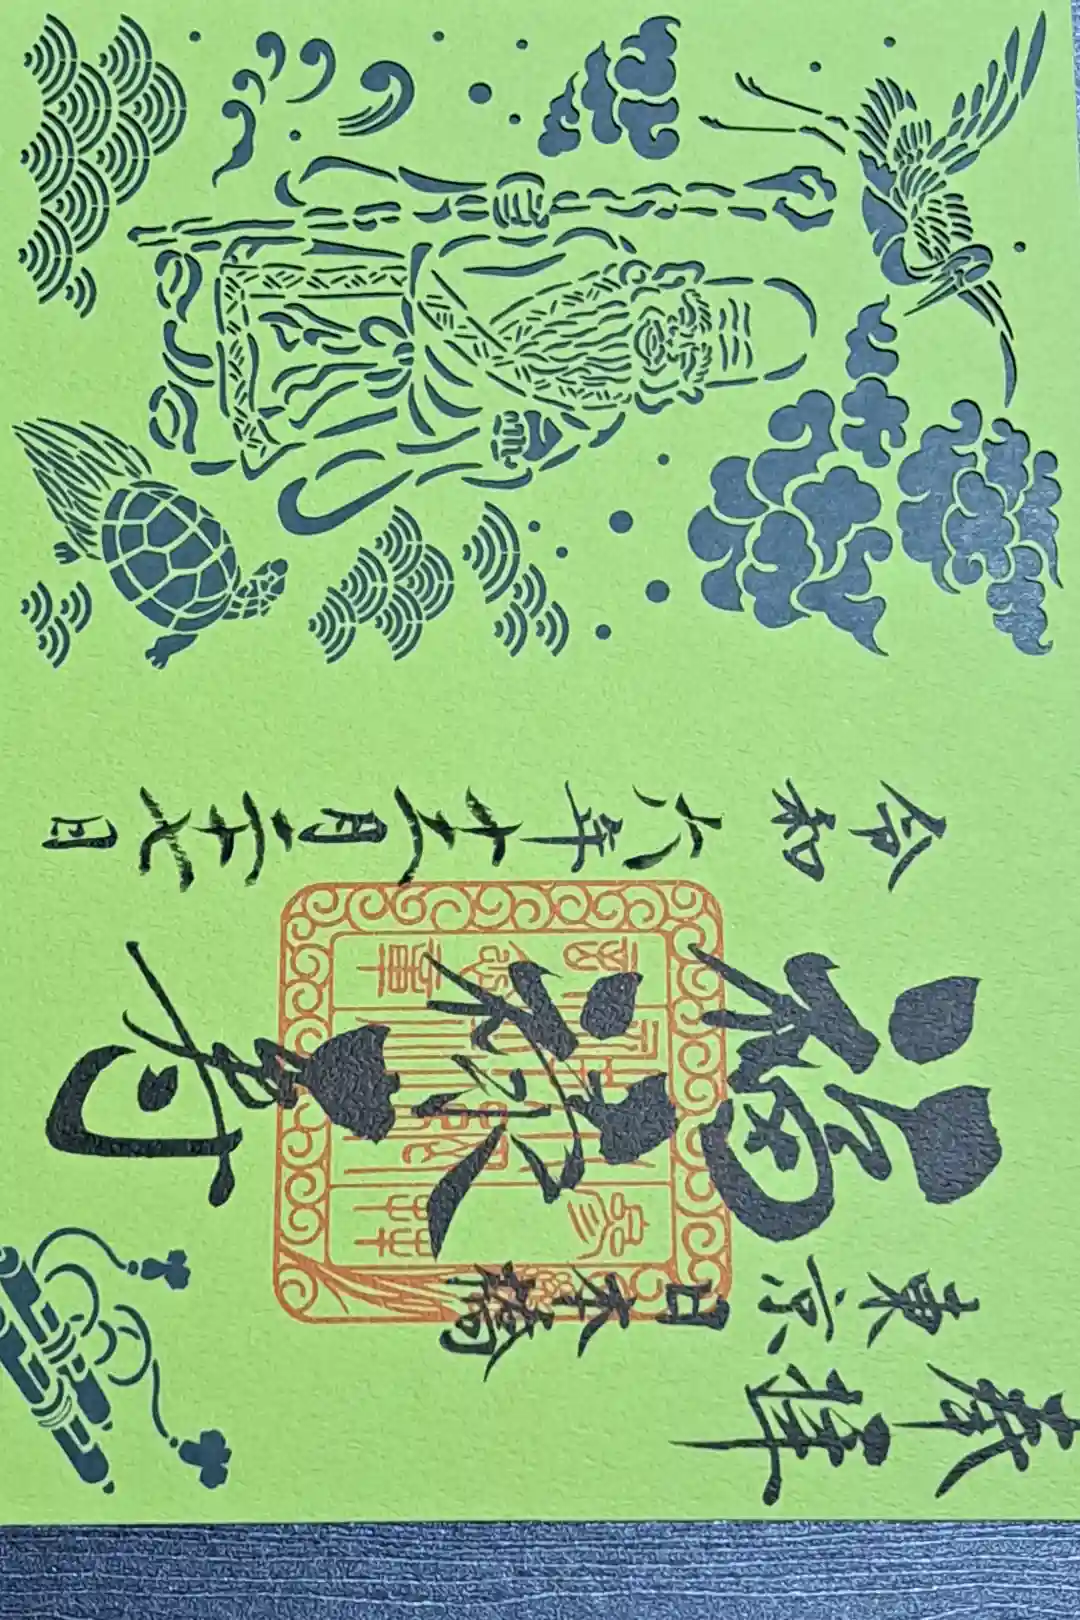 奉拝
東京日本橋
福禄寿
令和六年十二月二十七日